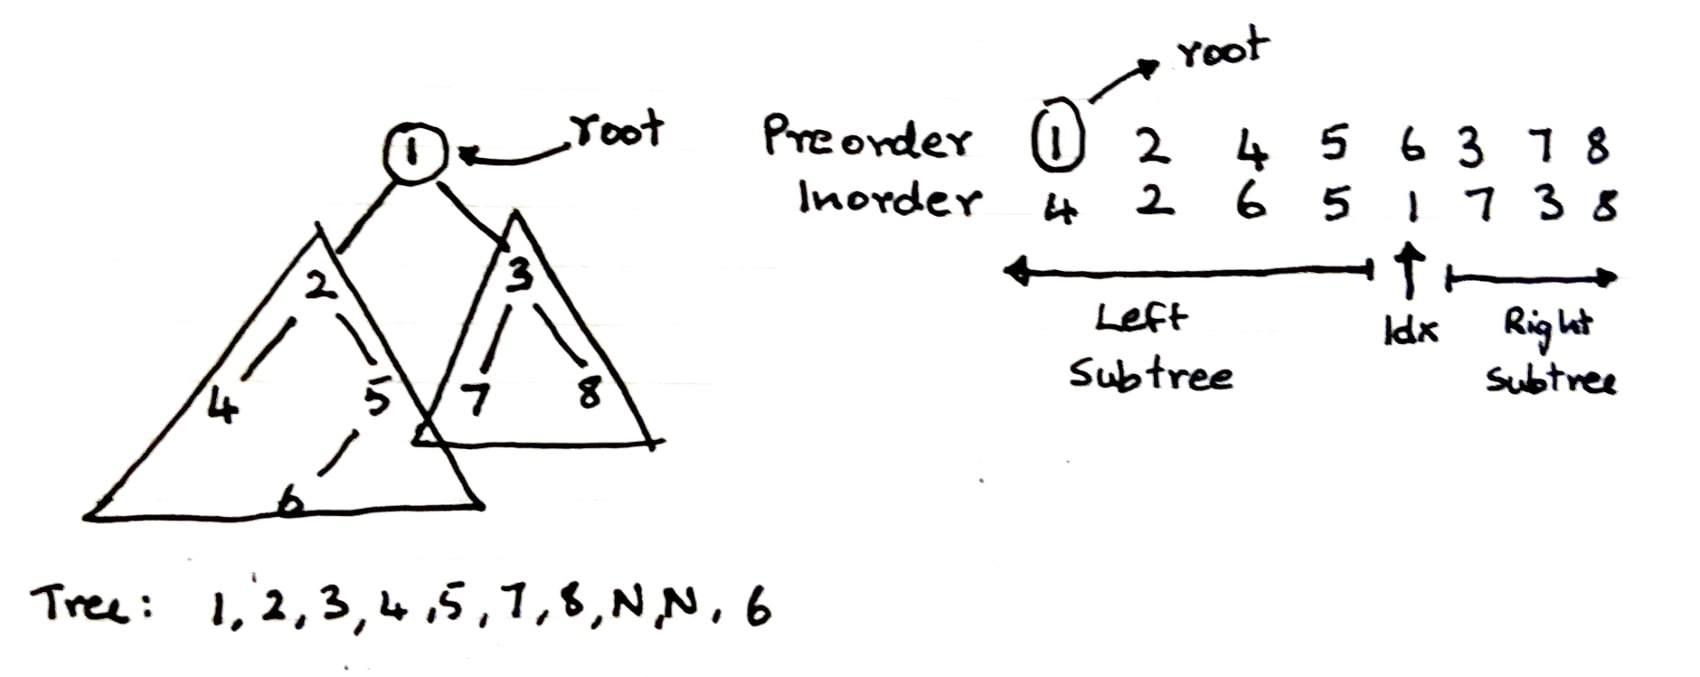 root
1
root
2
3
4
5
7
8
6
Tree: 1, 2, 3, 4, 5, 7, 8, N, N, 6
root
Preorder 1 2 4 5 6 3 7 8
Inorder 4 2 6 5 1 7 3 8
Left Subtree
Idx
Right Subtree